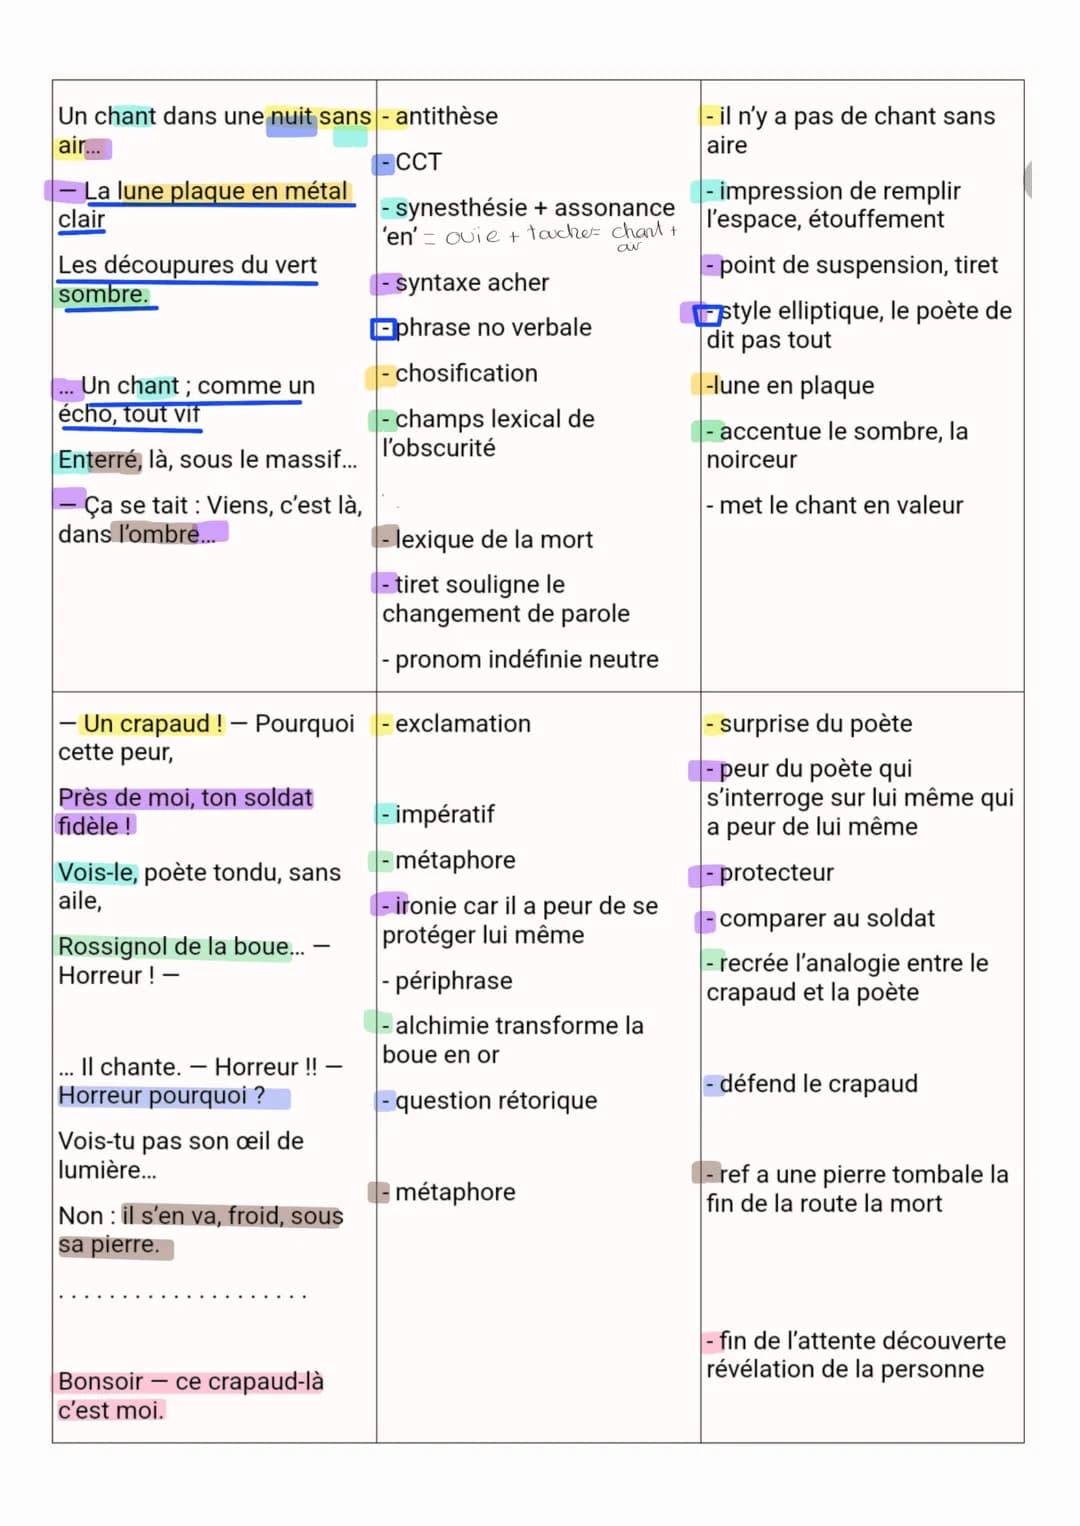 Un chant dans une nuit sans
air...
— La lune plaque en métal
clair
Les découpures du vert
sombre.
... Un chant ; comme un
écho, tout vif
Enterré, là, sous le massif...
— Ça se tait : Viens, c'est là,
dans l'ombre...
- antithèse
- CCT
- synesthésie + assonance
'en' = ouïe + touche= chant +
air
- syntaxe acher
- phrase no verbale
- chosification
- champs lexical de
l'obscurité
- lexique de la mort
- tiret souligne le
changement de parole
- pronom indéfinie neutre
- il n'y a pas de chant sans
aire
- impression de remplir
l'espace, étouffement
- point de suspension, tiret
- style elliptique, le poète de
dit pas tout
-lune en plaque
- accentue le sombre, la
noirceur
- met le chant en valeur
— Un crapaud ! — Pourquoi
cette peur,
Près de moi, ton soldat
fidèle !
Vois-le, poète tondu, sans
aile,
Rossignol de la boue... —
Horreur ! —
... Il chante. — Horreur !! —
Horreur pourquoi ?
Vois-tu pas son œil de
lumière...
Non : il s'en va, froid, sous
sa pierre.
. . . . . . . . . . . . . . . . . . . .
Bonsoir — ce crapaud-là
c'est moi.
- exclamation
- impératif
- métaphore
- ironie car il a peur de se
protéger lui même
- périphrase
- alchimie transforme la
boue en or
- question rétorique
- métaphore
- surprise du poète
- peur du poète qui
s'interroge sur lui même qui
a peur de lui même
- protecteur
- comparer au soldat
- recrée l'analogie entre le
crapaud et la poète
- défend le crapaud
- ref a une pierre tombale la
fin de la route la mort
- fin de l'attente découverte
révélation de la personne